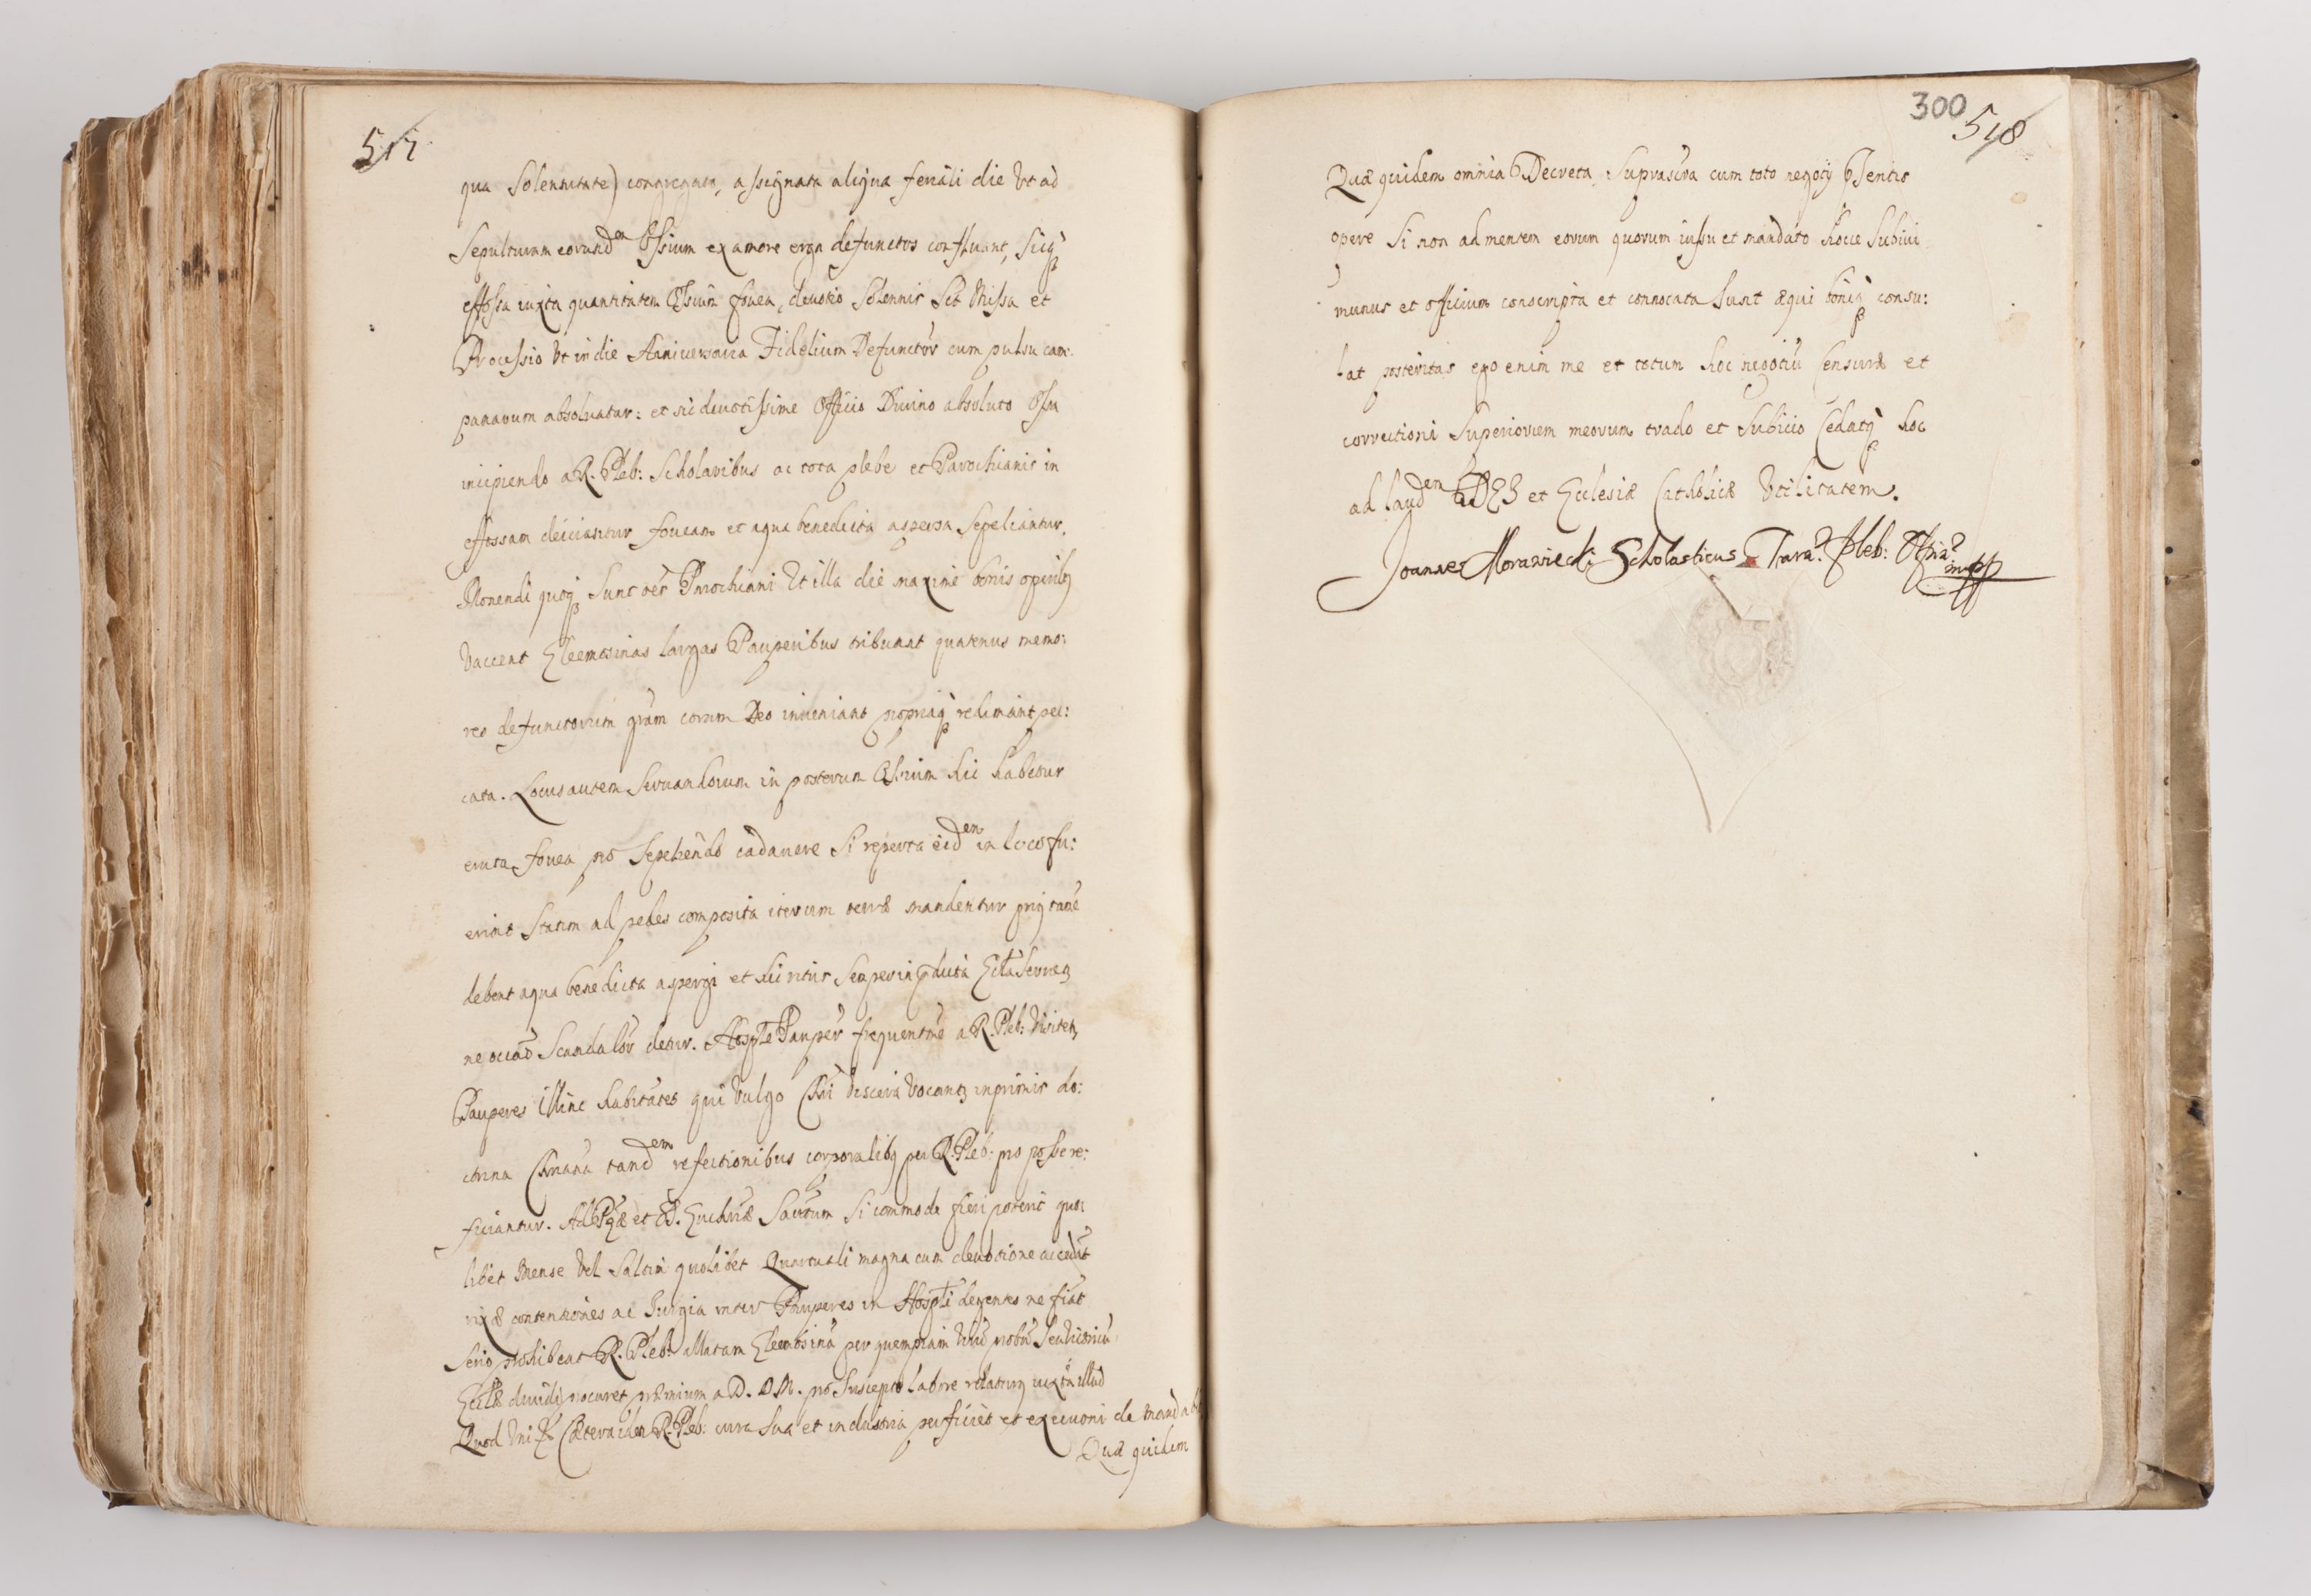 517
qua Solennitate) congregata, assignata aliqua feriali die Vt ad
Sepulturam eorund<sup>em</sup> Ossium ex amore erga defunctos confluant, Sicq̀
effossa iuxta quantitatem Ossiũ fouea, deuotio Solennis Sit Missa et
Processio Vt in die Anniuersaria Fidelium Defunctor̃ cum pulsu cam:
panarum absoluatur: et sic deuotissime Officio Diuino absoluto Ossa
incipiendo a R. Pleb: Scholaribus ac tota plebe et Parochianis in
effossam deiiciantur foueam et aqua benedicta aspersa Sepeliantur.
Monendi quoq̀ Sunt oẽs Parochiani Vt illa die maxime bonis operibq
Vaccent Eleemosinas largas Pauperibus tribuant quatenus memo:
res defunctorum grãm coram Deo inueniant propriaq̀ redimant pec:
cata. Locus autem Seruandorum in posterum Ossium hic habetur
eruta fouea pro Sepeliendo cadauere Si reperta eid<sup>em</sup> in loco fu:
erint Statim ad pedes composita iterum terræ mandentur priq tamẽ
debent aqua benedicta aspergi et hic ritus Semper in pducta Ecclã Seruetq
ne occaõ Scandalor̃ detur. Hosple Pauper̃ frequenter a R. Pleb: Visitetq
Pauperes illinc habitãtes qui Vulgo Chri Viscera Vocantq inprimis do:
ctrina Chriana tand<sup>em</sup> refectionibus corporalibq per R. Pleb: pro posse re:
ficiantur. Ad et Euchriæ Sacrum Si commode fieri poterit quo:
libet Mense Vel Saltim quolibet Quartuali magna cum deuotione accedãt
rixæ contentiones ac Iurgia inter Pauperes in Hospli degentes ne fiãt
Serio prohibeat R. Pleb: allatam Eleemosinã per quempiam
Ecclæ diuidi procuret præmium a D. O. M. pro Suscepto labore relaturq iuxta illud
Quod Vni &c Cætera idem R. Pleb: cura Sua et industria perficiet et executioni de mandab
Quæ quidem
300
518
Quæ quidem omnia Decreta Suprascrıta cum toto negoty Psentis
opere Si non ad mentem eorum quorum iussu et mandato hocce Subiui
munus et officium conscripta et connotata Sunt æqui boniq̀ consu:
lat posteritas ego enim me et totum hoc negotiũ Censuræ et
correctioni Superiorum meorum trado et Subiicio Cedatq̀ hoc
ad laud<sup>em</sup> DEI et Ecclesiæ Catholicæ Vtilitatem.
Joannes Morawiecki Scholasticus Tarn: Pleb: mpp